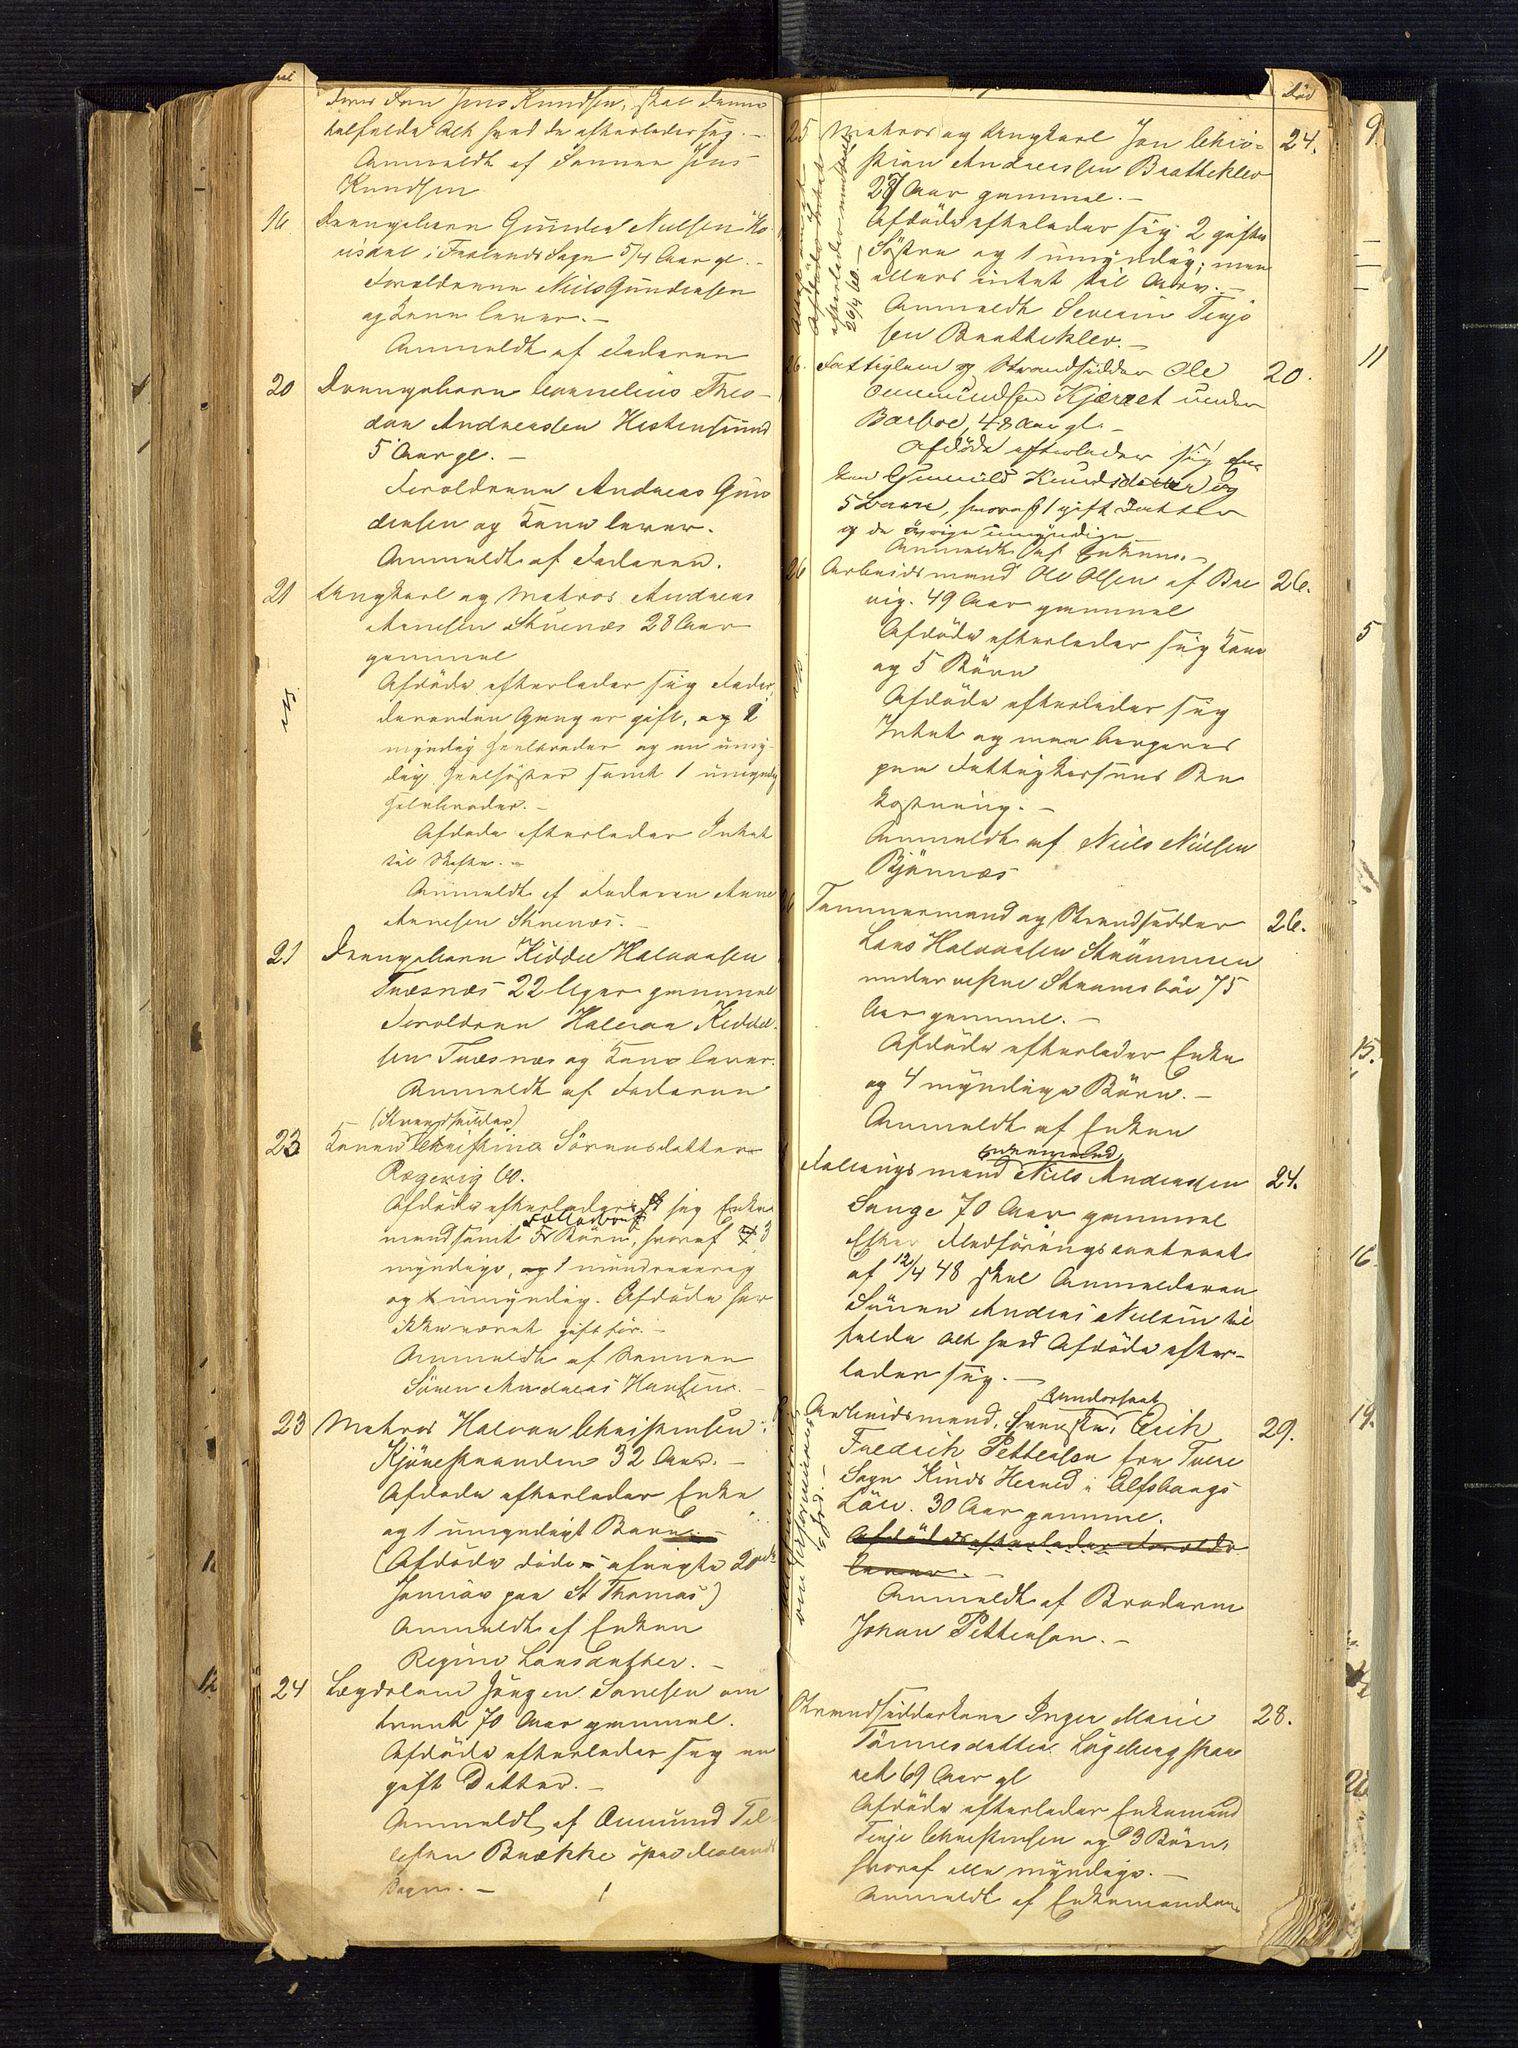 deres Søn Jens Knudsen, skal denne
tilfalde Alt hvad de efterlader sig. –
Anmeldt af Sønnen Jens
Knudsen
16 Drengebarn Gunder Nielsen
i Froland Sogn 5/4 Aar gl. –
Forældrene Niels Gundersen
og Kone lever. –
Anmeldt af Faderen
20 Drengebarn Cornelius Theo-
dor Andreassen Hestensund
5 Aar gl. –
Forældrene Andreas Gun
dersen og Kone lever.
Anmeldt af Faderen.
21 Ungkarl og Matros Andreas
Arnesen Skrenæs 23 Aar
gammel
Afdøde efterlader sig Fader,
der anden Gang er gift, og 1
myndig Heelbroder og en umyn-
dig Heelsøster samt 1 umyndig
Halvbroder. –
Afdøde efterlader Intet
til Skifte. –
Anmeldt af Faderen Arne
Arnesen Skrenæs. –
21 Drengebarn Kiddel Halvorsen
Tresnæs 22 Uger gammel
Forældrene Halvor Kiddel-
sen Tresnæs og Kone lever.
Anmeldt af Faderen
(Strandsidder)
23 Konen Christine Sørensdatter
Rægevig 60.
Afdøde efterlader sig Enke
mand samt 5 Børn, hvoraf 3
myndige, og 1 mindreaarig
og 1 umyndig. Afdøde har
ikke været gift før. –
Anmeldt af Sønnen
Søren Andreas Hansen. –
23 Matros Halvor Christensen
Kjørrestranden 32 Aar. –
Afdøde efterlader Enke
og 1 umyndigt Barn. –
(Afdøde døde afvigte 20de
Januar paa St Thomas)
Anmeldt af Enken
Regine Larsdatter. –
24 Lægdslem Jørgen Larsen om
trent 70 Aar gammel.
Afdøde efterlader sig en
gift Datter. –
Anmeldt af Omund Tel
lefsen Brække øpre Molands
Sogn. –
Død
25 Matros og Ungkarl Jon Chri- 24.
stian Andreassen Bratteklev
28 Aar gammel. –
Afdøde efterlader sig 2 gifte
Søstre og 1 umyndig; men
ellers intet til Arv. –
Anmeldt Severin Terje
sen Bratteklev. –
26. Fattiglem og Strandsidder Ole 20.
Ommundsen Kjærret under
Barboe, 48 Aar gl. –
Afdøde efterlader sig En-
ken Gunnild Knudsdatter og
5 Børn, hvoraf 1 gift Datter
og de øvrige umyndige
Anmeldt af Enken. –
26 Arbeidsmand Ole Olsen af Bre 26.
vig. 49 Aar gammel
Afdøde efterlader sig Kone
og 5 Børn
Afdøde efterlader sig
Intet og maa begraves
paa Fattigkassens Be
kostning. –
Anmeldt af Niels Nielsen
Bjønnæs
Tømmermand og Strandsidder 26.
Lars Halvorsen Strømmen
under vestre Strømsbøe 75
Aar gammel. –
Afdøde efterlader Enke
og 4 myndige Børn. –
Anmeldt af Enken
Enkemand
Fallangsmand Niels Andersen 24.
Lange 70 Aar gammel
Efter Fledføringscontract
af 12/4 48 skal Anmelderen
Sønnen Andreas Nielsen til
falde Alt hvad Afdøde efter-
lader sig. –
Arbeidsmand, svenske Undersaat Erik 29.
Fredrik Petterson fra Tvere
Sogn Kinds Herred i Elfsborgs
Län. 30 Aar gammel.
Afdødes efterlader Forældre
lever. –
Anmeldt af Broderen
Johan Petterson. –
Strandsidderkone Inger Marie 28.
Tønnesdatter Løgebergstran
det 69 Aar gl
Afdøde efterlader Enkemand
Terje Christensen og 3 Børn,
hvoraf alle myndige. –
Anmeldt af Enkemanden
9.
11
5
15.
16.
19.